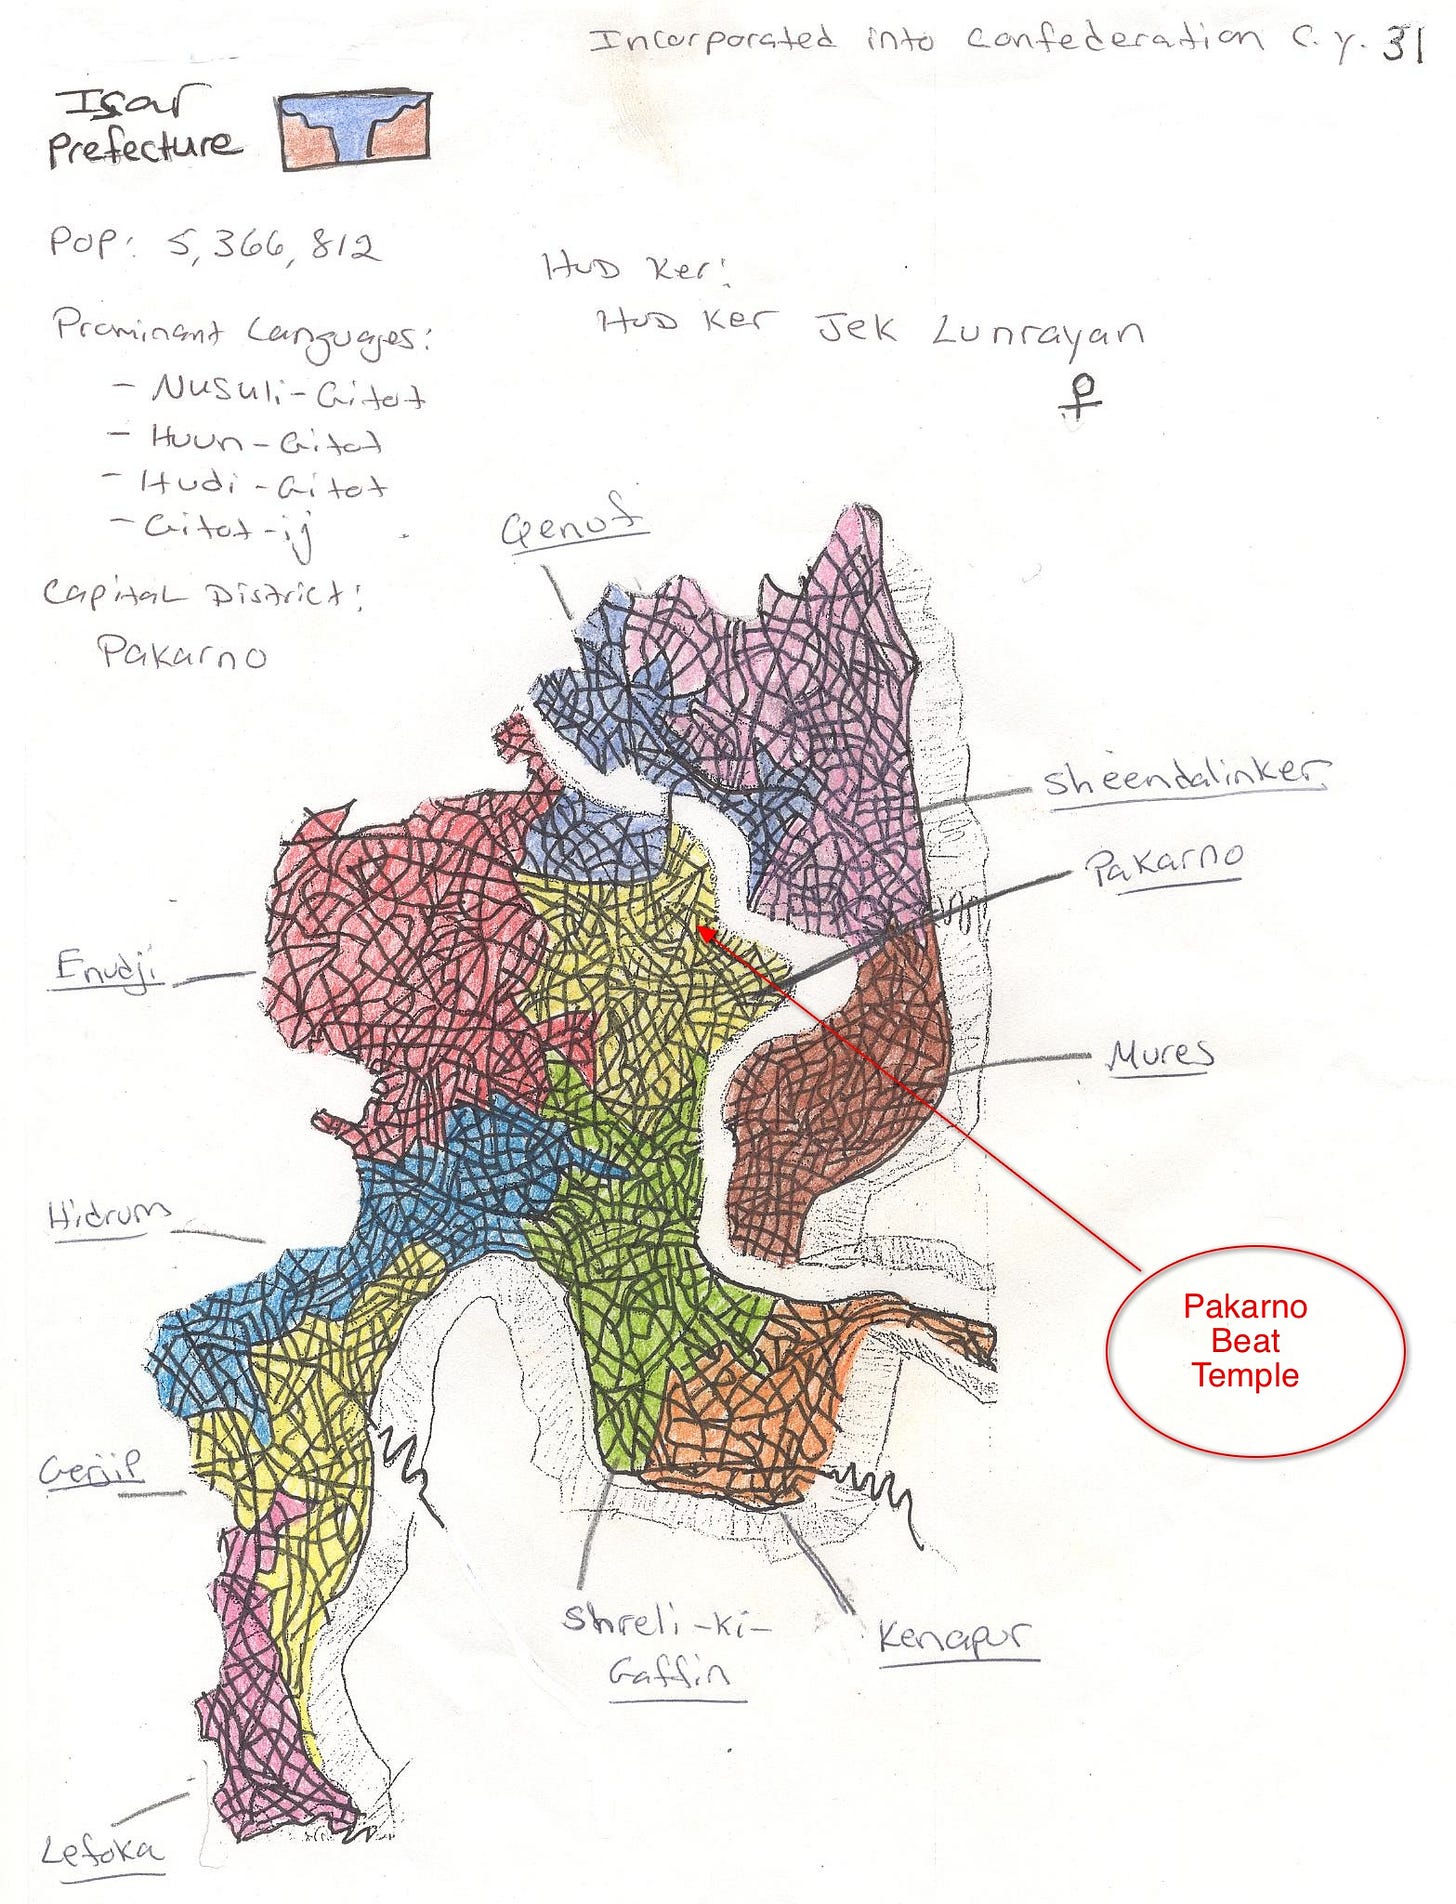 Incorporated into confederation C.Y. 31
Isar
Prefecture
Pop: 5,366,812
Hud Ker:
Hud Ker Jek Lunrayan
♀
Prominant Languages:
- Nusuli-Gitot
- Huun-Gitot
- Hudi-Gitot
- Gitot-ij
Capital District:
Pakarno
Qenof
Sheendalinker
Pakarno
Enudji
Mures
Hidrum
Pakarno
Beat
Temple
Shreli-ki-
Gaffin
Kenapur
Lefoka